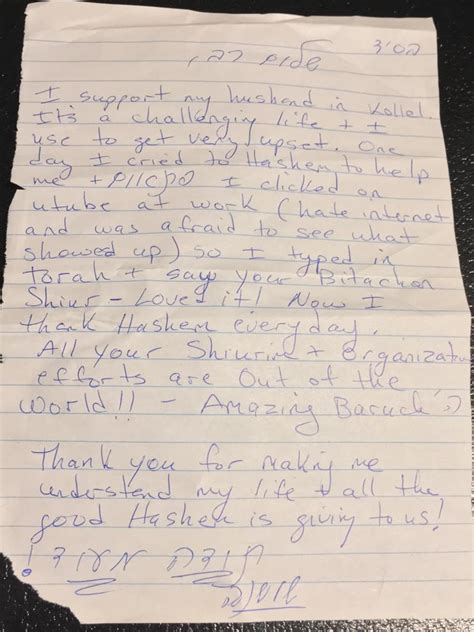 בס״ד
שלום רבי,
I support my husband in Kollel.
It's a challenging life + I
use to get very upset. One
day I cried to Hashem to help
me + פתאום I clicked on
utube at work (hate internet
and was afraid to see what
showed up) so I typed in
Torah + saw your Bitachon
Shiur - Loved it! Now I
thank Hashem everyday.
All your Shiurim +
efforts are Out of the
World!! - Amazing Baruch ה'
Thank you for making me
understand my life + all the
good Hashem is giving to us!
תודה מאוד!